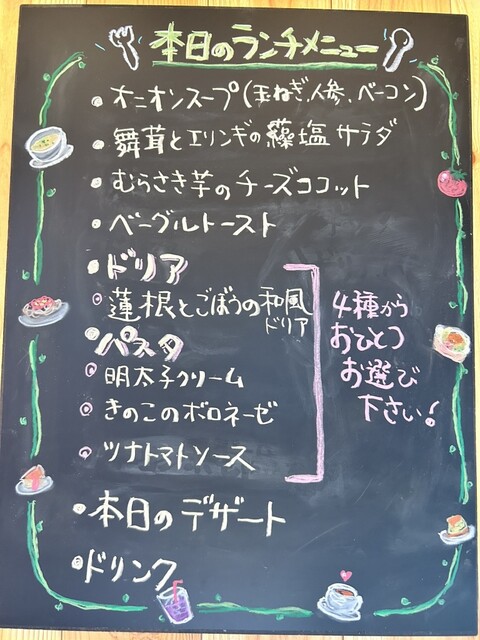 本日のランチメニュー
・オニオンスープ(玉ねぎ、人参、ベーコン)
・舞茸とエリンギの藻塩サラダ
・むらさき芋のチーズココット
・ベーグルトースト
・ドリア
蓮根とごぼうの和風ドリア
・パスタ
明太子クリーム
きのこのボロネーゼ
ツナトマトソース
4種から
おひとつ
お選び
下さい!
・本日のデザート
・ドリンク